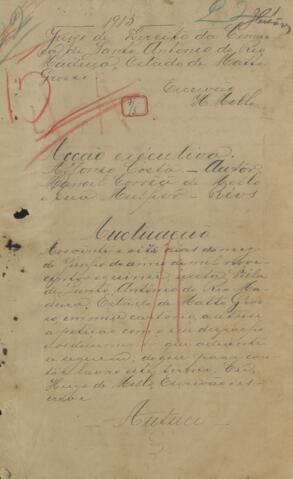 1915
Juizo de Direito da Comar
ca de Santo Antonio do Rio
Madeira, Estado de Matto
Grosso.
Escrivão
H. Mello
Acção executiva.
Affonso Costa - Autor
Manoel Corrêa de Mello
e sua Mulher - Réos
Autuação
Aos vinte e oito dias do mez
de Junho do anno de mil nove
centos e quinze, nesta Villa
de Santo Antonio do Rio Ma
deira, Estado de Matto Gros
so, em meu cartorio, autuei
a petição com o seu despacho
que adiante
se seguem, do que para cons
tar lavro este termo. Eu,
Hugo de Mello, Escrivão es-
crevi
Autuei